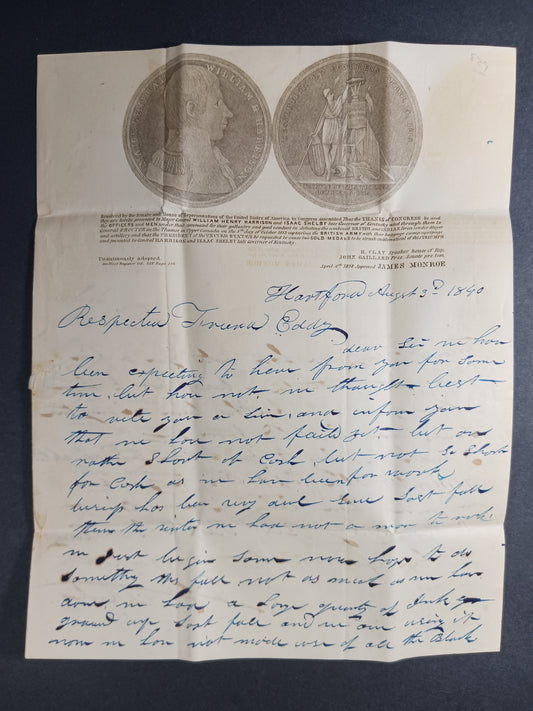 MAJOR GENERAL WILLIAM H. HARRISON
RESOLUTION OF CONGRESS APRIL 4, 1818
Resolved by the Senate and House of Representatives of the United States of America in Congress assembled That the THANKS of CONGRESS be and
they are hereby presented to Major General WILLIAM HENRY HARRISON and ISAAC SHELBY late Governor of Kentucky and through them to
the OFFICERS and MEN under their command for their gallantry and good conduct in defeating the combined BRITISH and INDIAN forces under Major
General PROCTOR on the Thames in Upper Canada on the 5th day of October 1813 capturing the BRITISH ARMY with their baggage camp equippage
and artillery and that the PRESIDENT of the UNITED STATES be requested to cause two GOLD MEDALS to be struck emblematical of this TRIUMPH
and presented to General HARRISON and ISAAC SHELBY late Governor of Kentucky
H. CLAY Speaker house of Rep.
Unanimously adopted.
JOHN GAILLARD Pres. Senate pro tem.
April 4th 1818 Approved JAMES MONROE
Hartford August 3d 1840
Respected Friend Eddy
dear Sir we have
been expecting to hear from you for some
time, but have not, we thought best
to write you a line, and inform you
that we have not failed yet but are
rather short of Cash, but not so short
for Cash as we have been for work
business has been very dull since last fall
then the winter we had not a man to work
we just begin some now hope to do
something this fall not as much as we have
done, we have a large quantity of
ground up last fall and we are using it
now we have not made use of all the Black